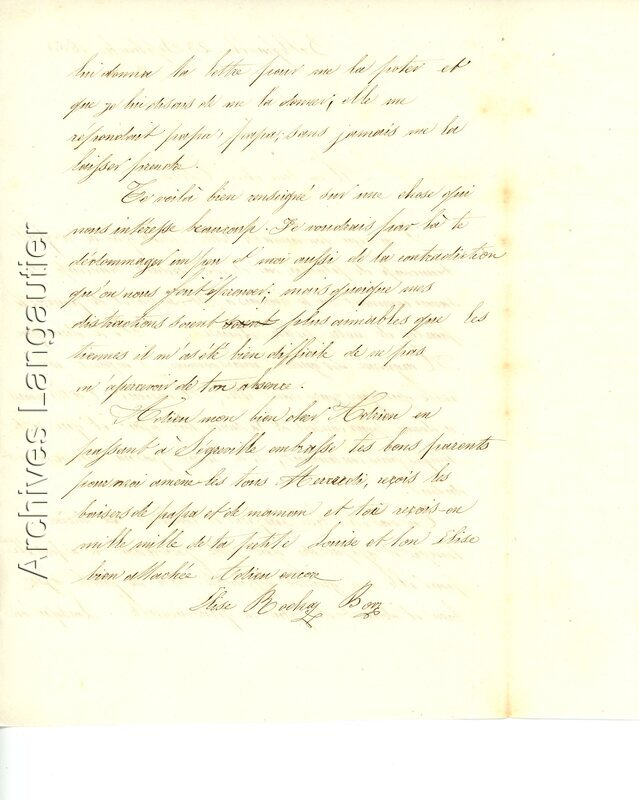 lui donna la lettre pour me la poter et
que je lui disais de me la donner; elle me
repondait papa, papa, sans jamais me la
laisser prendre.
Te voilà bien renseigné sur une chose qui
nous intéresse beaucoup. Je voudrais par là te
dédommager un peu et moi aussi de la contradiction
qu'on nous fait éprouver; mais quoique mes
distractions soient soient plus aimables que les
tiennes il m'a été bien difficile de ne pas
m'apercevoir de ton absence.
Adieu mon bien cher Adrien en
passant à embrasse tes bons parents
pour moi amène les tous Mercredi, reçois les
baisers de papa et de maman et toi reçois-en
mille mille de la petite Louise et ton Elise
bien attachée Adieu encore
Elise
Archives Langautier